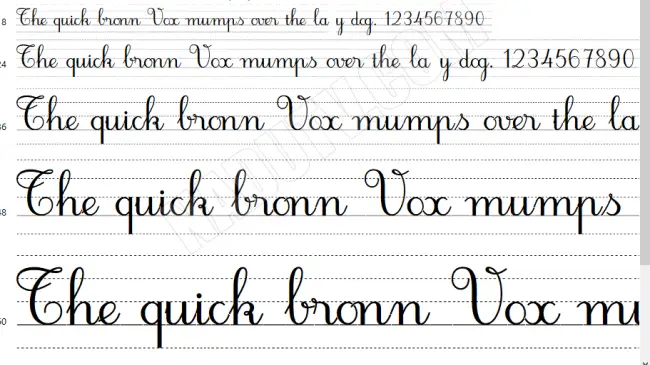 8 The quick bronn Vox mumps over the la y dog. 1234567890
24 The quick bronn Vox mumps over the la y dog. 1234567890
36 The quick bronn Vox mumps over the la
48 The quick bronn Vox mumps
60 The quick bronn Vox mu